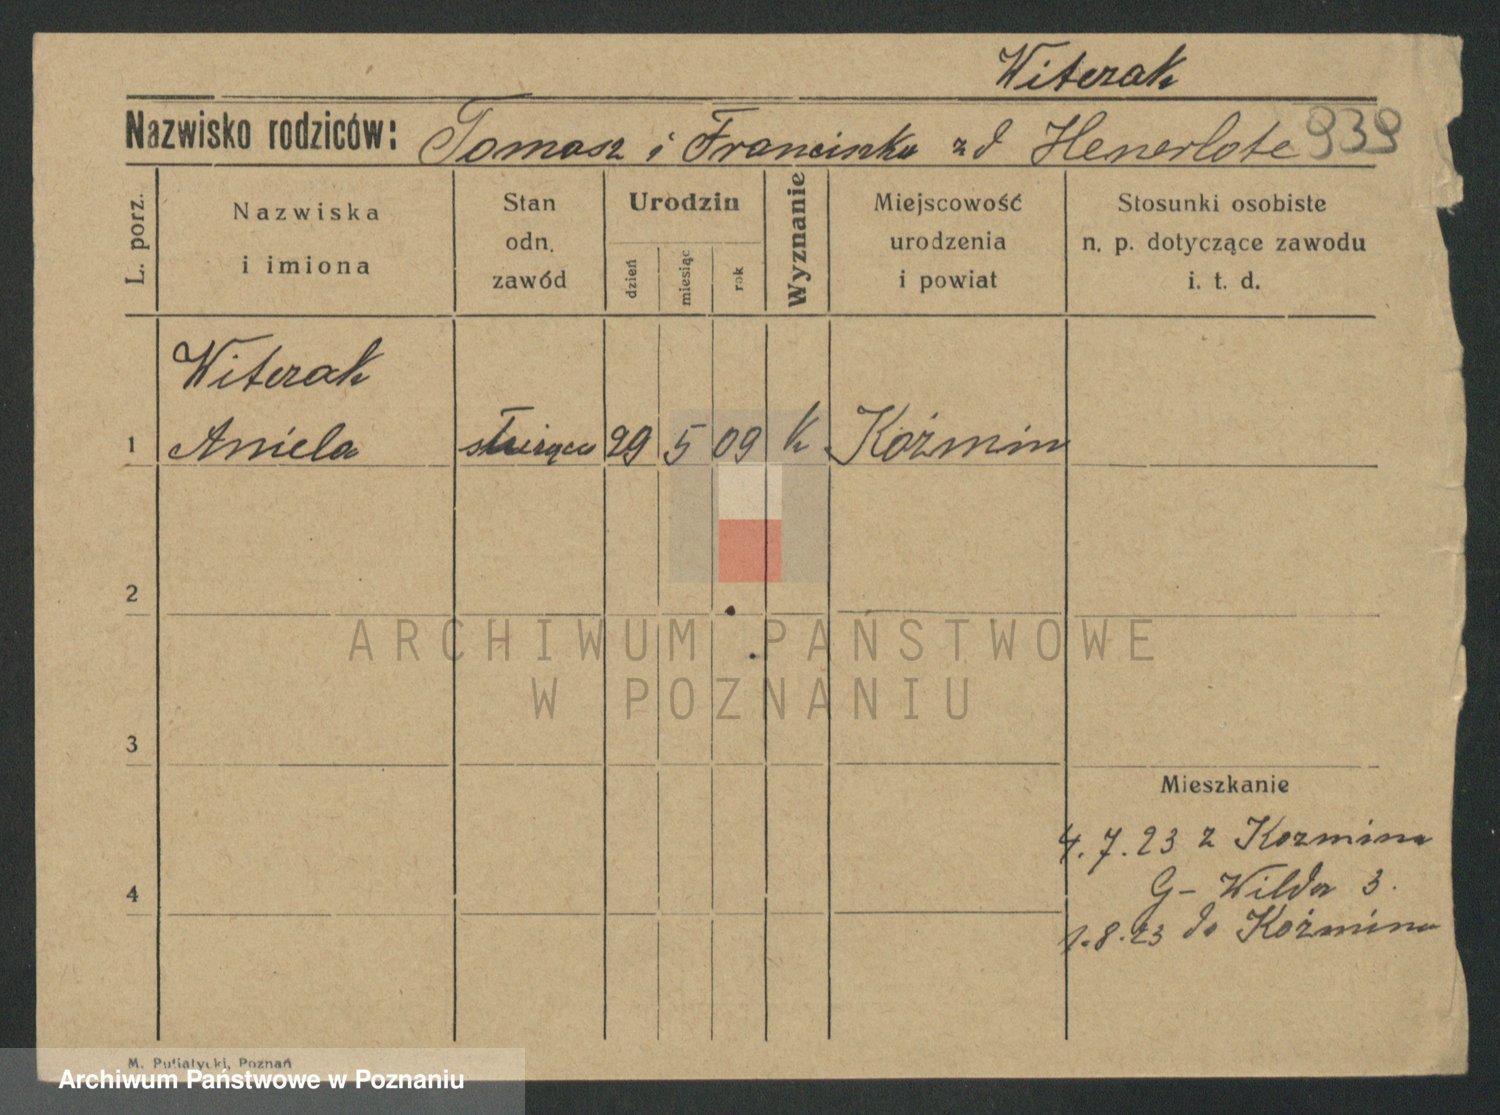 Witerak
Nazwisko rodziców: Tomasz i Franciszka zd Henerlote 939
L. porz.
Nazwiska
i imiona
Stan
odn.
zawód
Urodzin
dzień
miesiąc
rok
Wyznanie
Miejscowość
urodzenia
i powiat
Stosunki osobiste
n. p. dotyczące zawodu
i. t. d.
Witerak
1 Aniela służąca 29 5 09 k Koźmin
2
ARCHIWUM PAŃSTWOWE
W POZNANIU
3
Mieszkanie
4.7.23 z Kozmina
4
G-Wilda 3.
1.8.23 do Koźmina
M. Putiatycki, Poznań
Archiwum Państwowe w Poznaniu